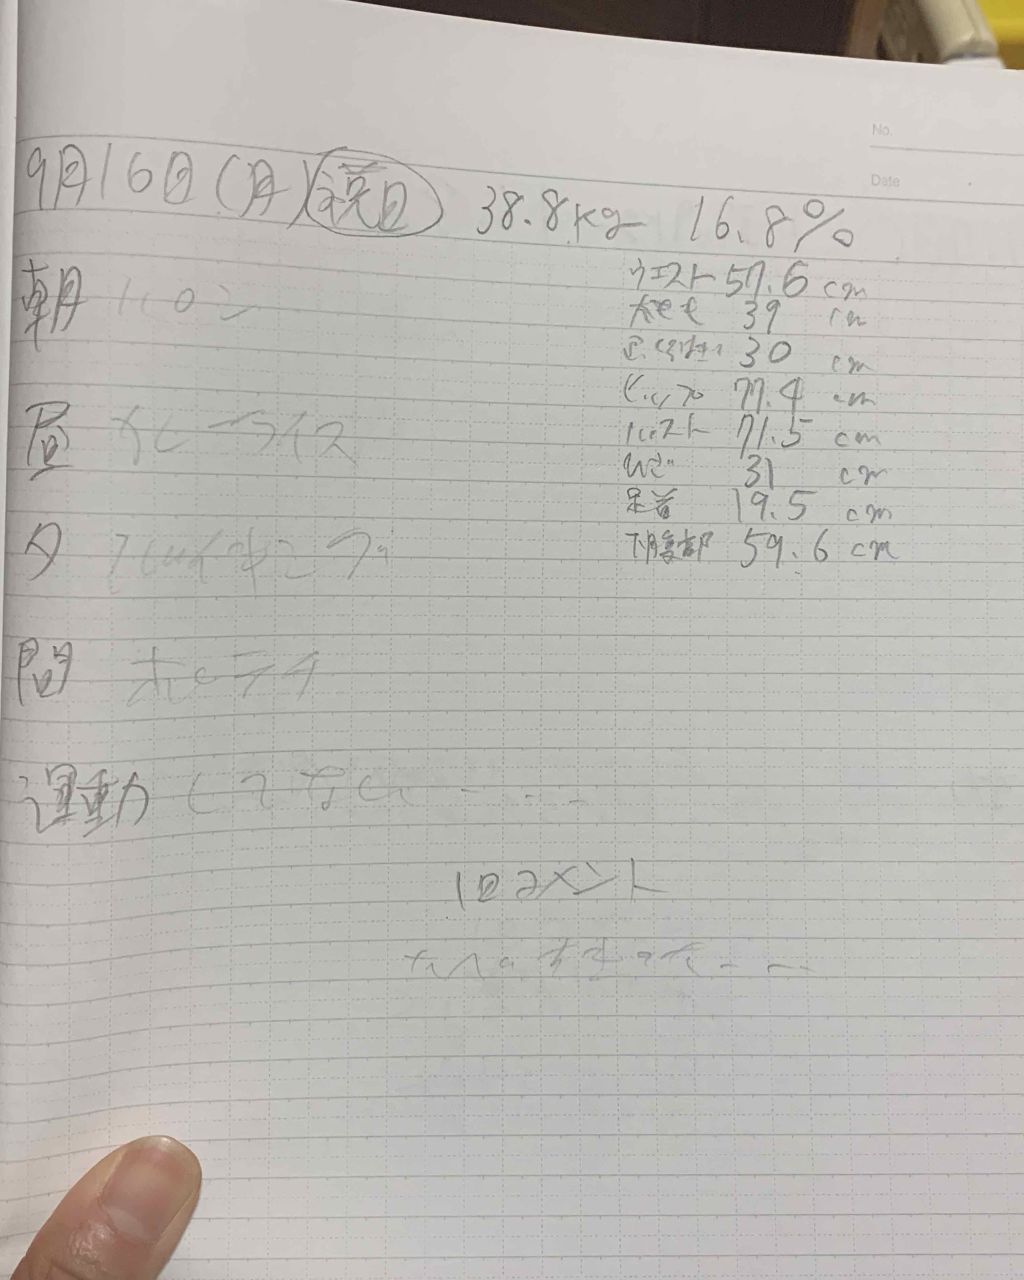 No.
Date
9月16日(月)祝日 38.8kg 16.8%
朝 パン
ウエスト 57.6 cm
太もも 39 cm
30 cm
ヒップ 77.4 cm
バスト 71.5 cm
昼 オムライス
31 cm
足首 19.5 cm
下腹部 59.6 cm
夕
間 ポテチ
運動 してない・・・・
1日コメント